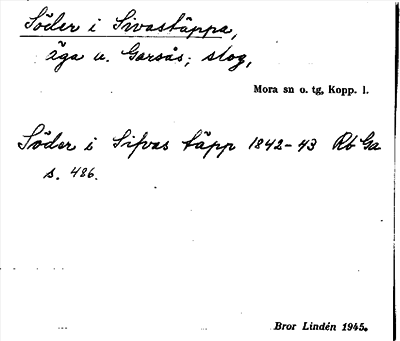 Söder i Sivastäppa,
äga u. Garsås; slog,
Mora sn o. tg, Kopp. l.
Söder i Sifvas täpp 1842-43 Rb Ga
s. 426.
Bror Lindén 1945.